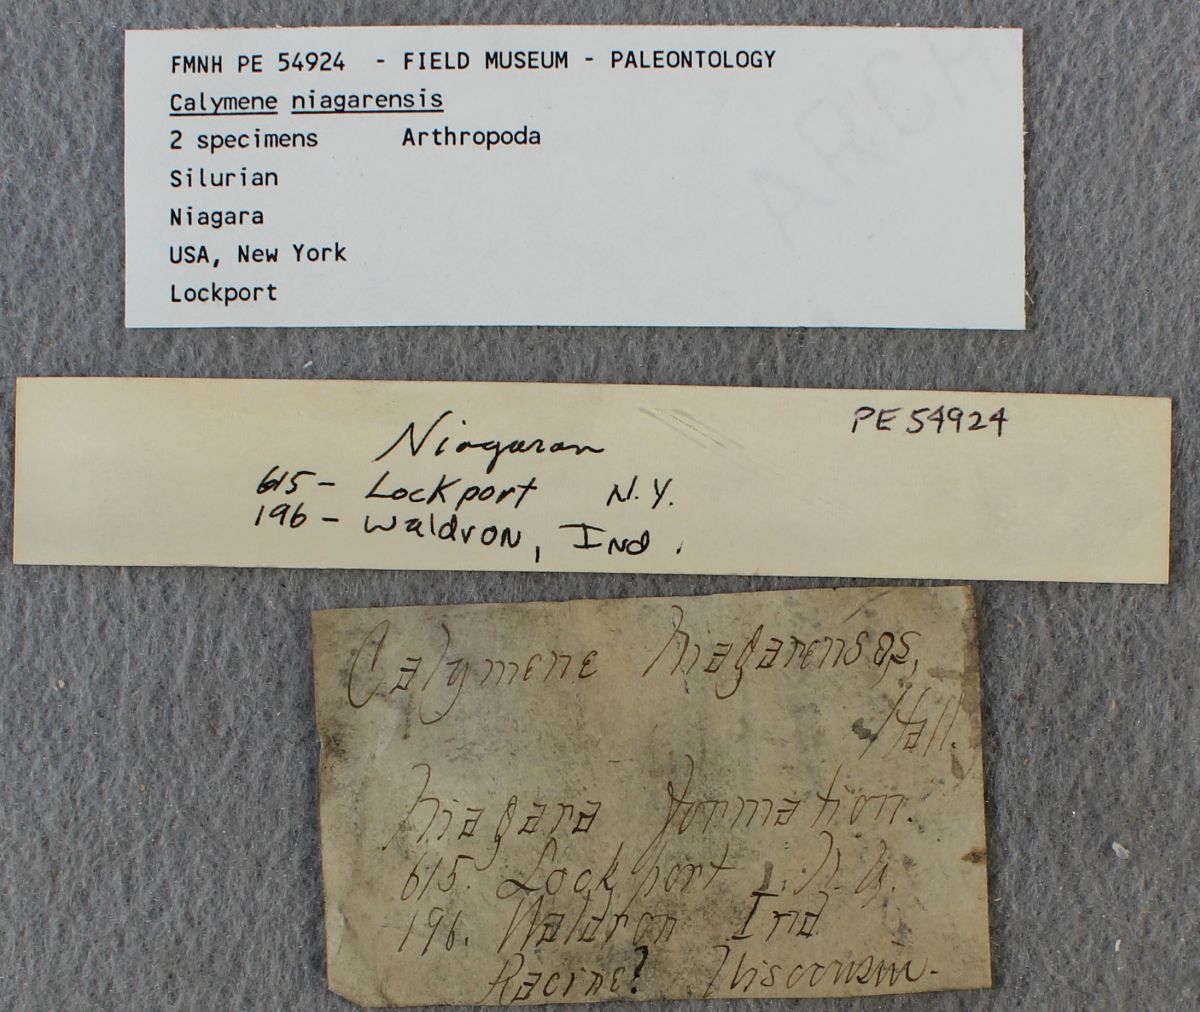 FMNH PE 54924 - FIELD MUSEUM - PALEONTOLOGY
Calymene niagarensis
2 specimens Arthropoda
Silurian
Niagara
USA, New York
Lockport
PE 54924
Niagaran
615 - Lockport N.Y.
196 - Waldron, Ind.
Calymene Niagarensis,
Hall.
Niagara formation.
615. Lockport, N.Y.
196. Waldron Ind
Racine? Wisconsin.